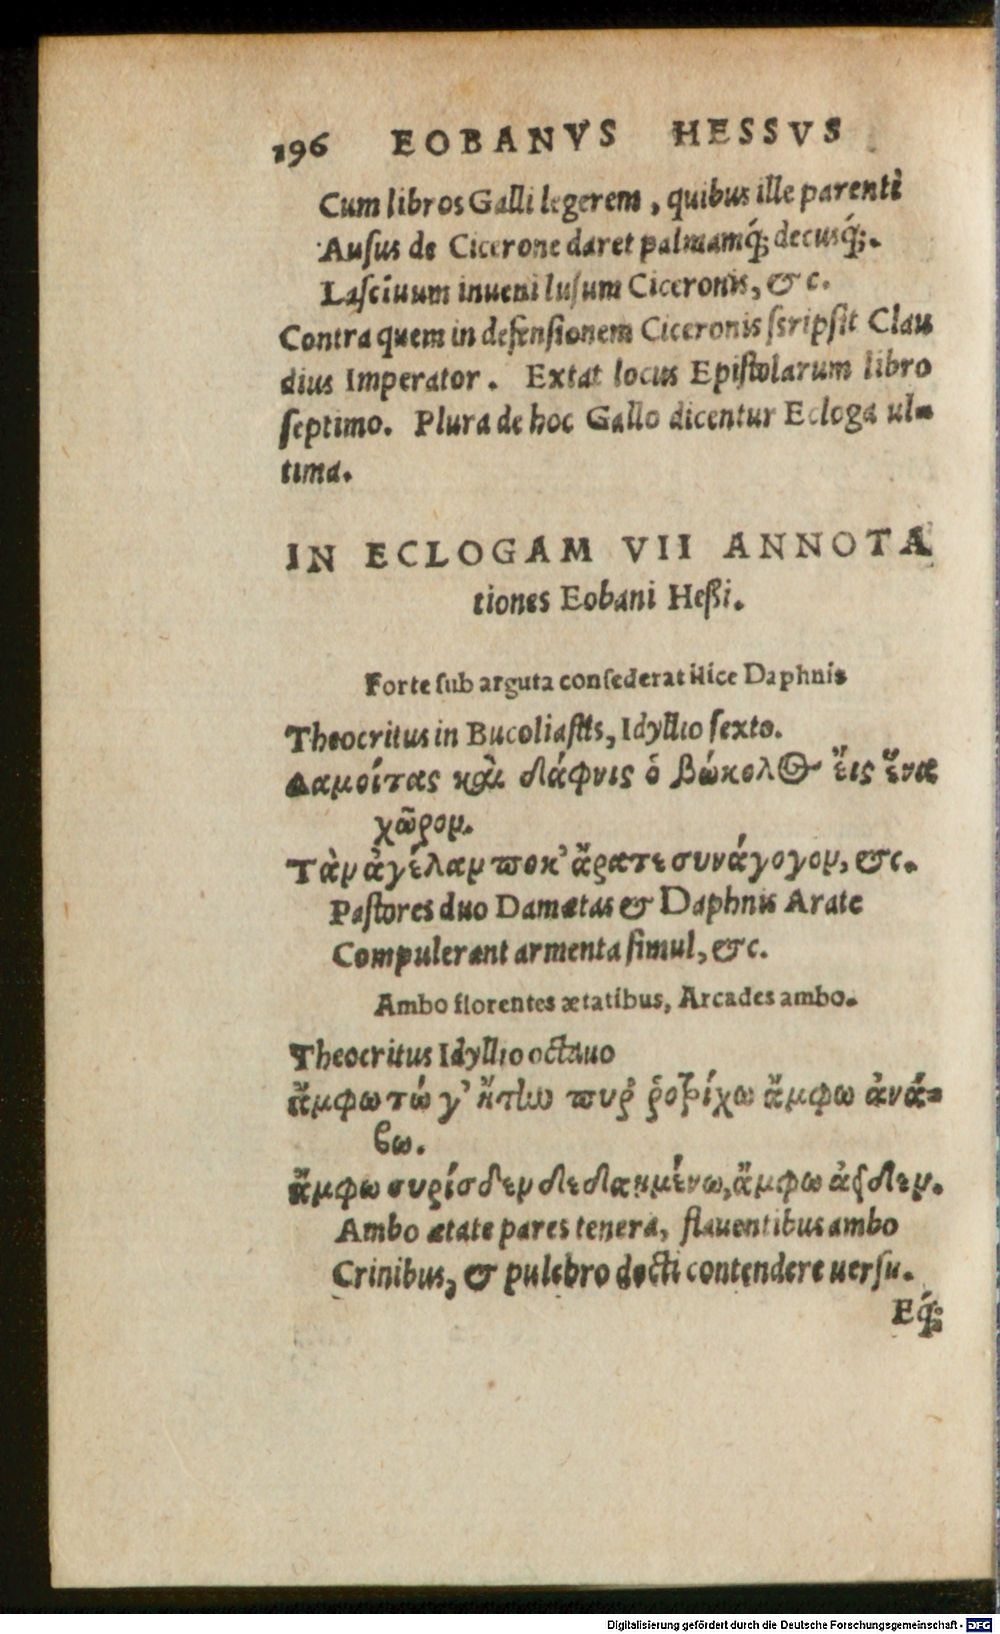 196 EOBANVS HESSVS
Cum libros Galli legerem, quibus ille parenti
Ausus de Cicerone daret palmamq́; decusq́;.
Lasciuum inueni lusum Ciceronis, & c.
Contra quem in defensionem Ciceronis scripsit Clau
dius Imperator. Extat locus Epistolarum libro
septimo. Plura de hoc Gallo dicentur Ecloga ul-
tima.
IN ECLOGAM VII ANNOTA
tiones Eobani Heßi.
Forte sub arguta consederat ilice Daphnis
Theocritus in Bucoliastis, Idyllio sexto.
Δαμοίτας καὶ δάφνις ὁ βώκολος ἔις ἕνα
χῶρον.
Τὰν ἀγέλαν ποκ' ἄρατε συνάγογον, &c.
Pastores duo Damætas & Daphnis Arate
Compulerant armenta simul, &c.
Ambo florentes ætatibus, Arcades ambo.
Theocritus Idyllio octauo
ἄμφω τώ γ' ἤτην πυρ ῥοτρίχω ἄμφω ἀνά-
βω.
ἄμφω συρίσδεν δεδαημένω, ἄμφω ἀείδεν.
Ambo ætate pares tenera, flauentibus ambo
Crinibus, & pulchro docti contendere uersu.
Eq́;
Digitalisierung gefördert durch die Deutsche Forschungsgemeinschaft - DFG